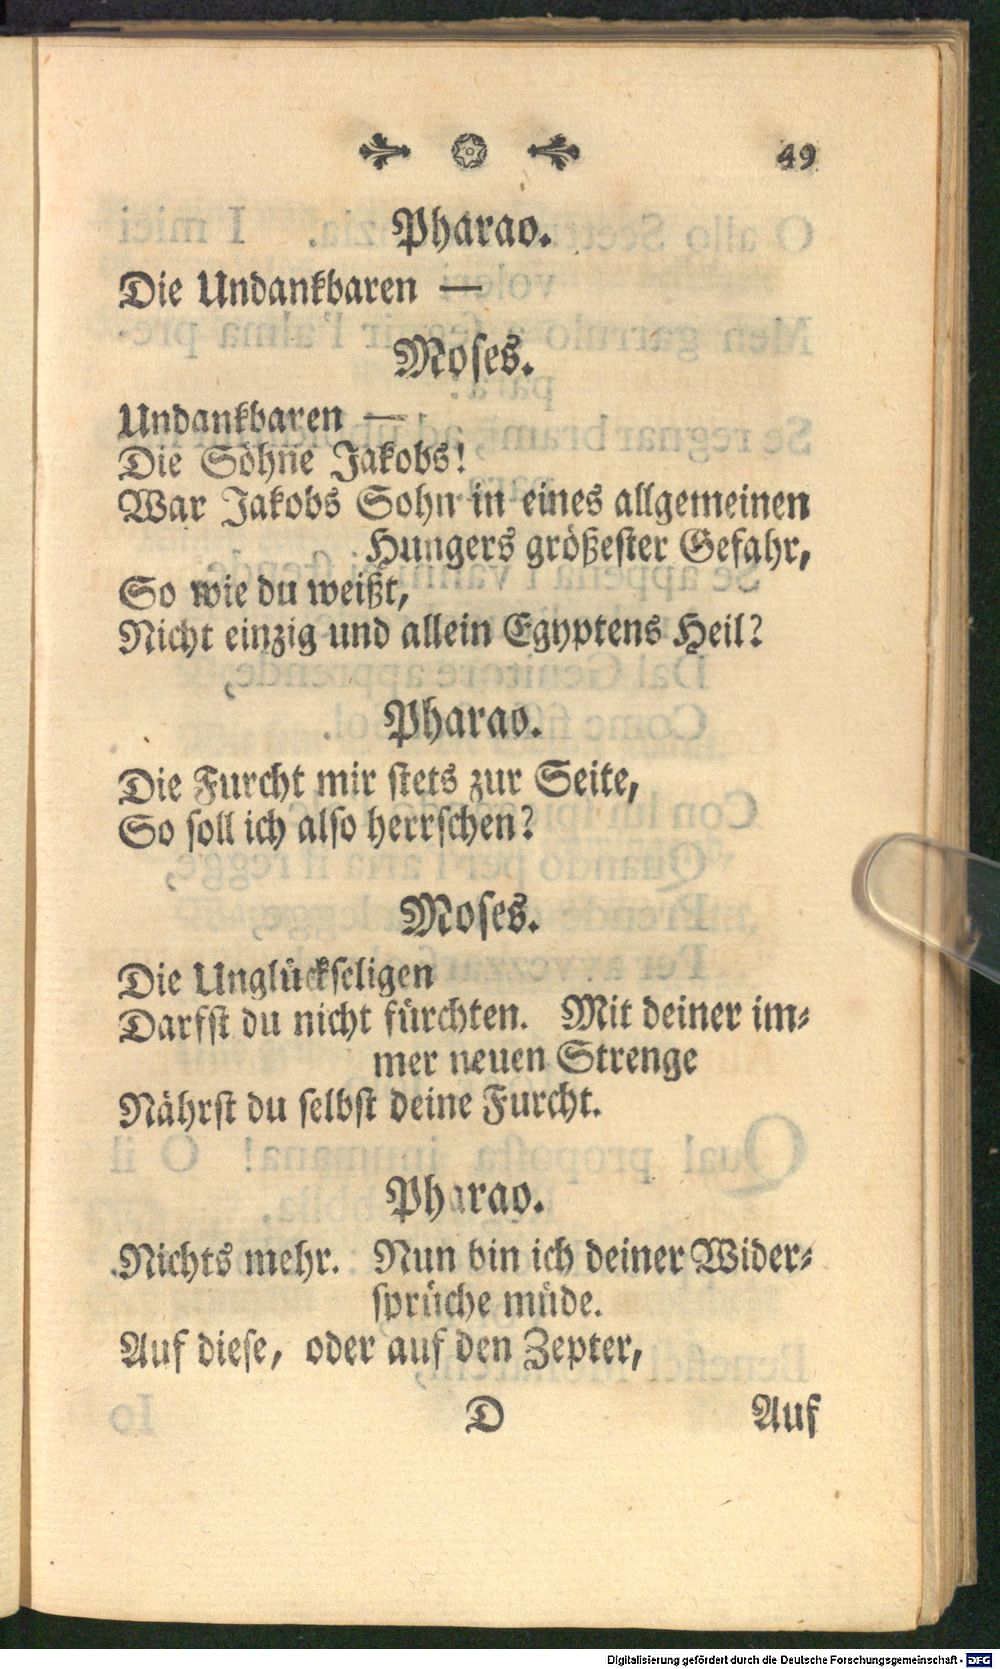 49
Pharao.
Die Undankbaren —
Moses.
Undankbaren —
Die Söhne Jakobs!
War Jakobs Sohn in eines allgemeinen
Hungers größester Gefahr,
So wie du weißt,
Nicht einzig und allein Egyptens Heil?
Pharao.
Die Furcht mir stets zur Seite,
So soll ich also herrschen?
Moses.
Die Unglückseligen
Darfst du nicht fürchten. Mit deiner im-
mer neuen Strenge
Nährst du selbst deine Furcht.
Pharao.
Nichts mehr. Nun bin ich deiner Wider-
sprüche müde.
Auf diese, oder auf den Zepter,
D Auf
Digitalisierung gefördert durch die Deutsche Forschungsgemeinschaft - DFG